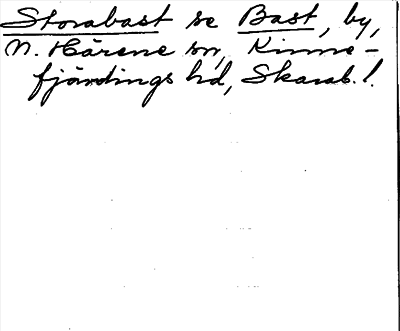 Storabast se Bast, by,
N. Härene sn, Kinne-
fjärdings hd, Skarab. l.